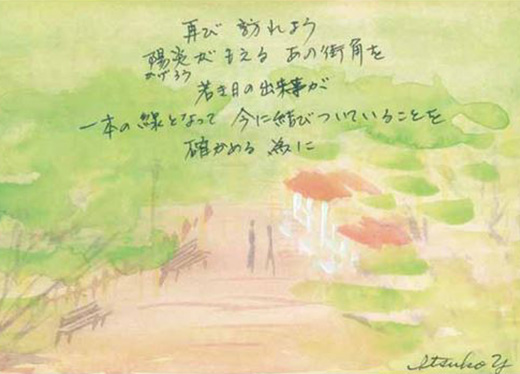 再び 訪れよう
陽炎がもえる あの街角を
かげろう
若き日の出来事が
一本の線となって 今に結びついていることを
確かめる 為に
Itsuko Y